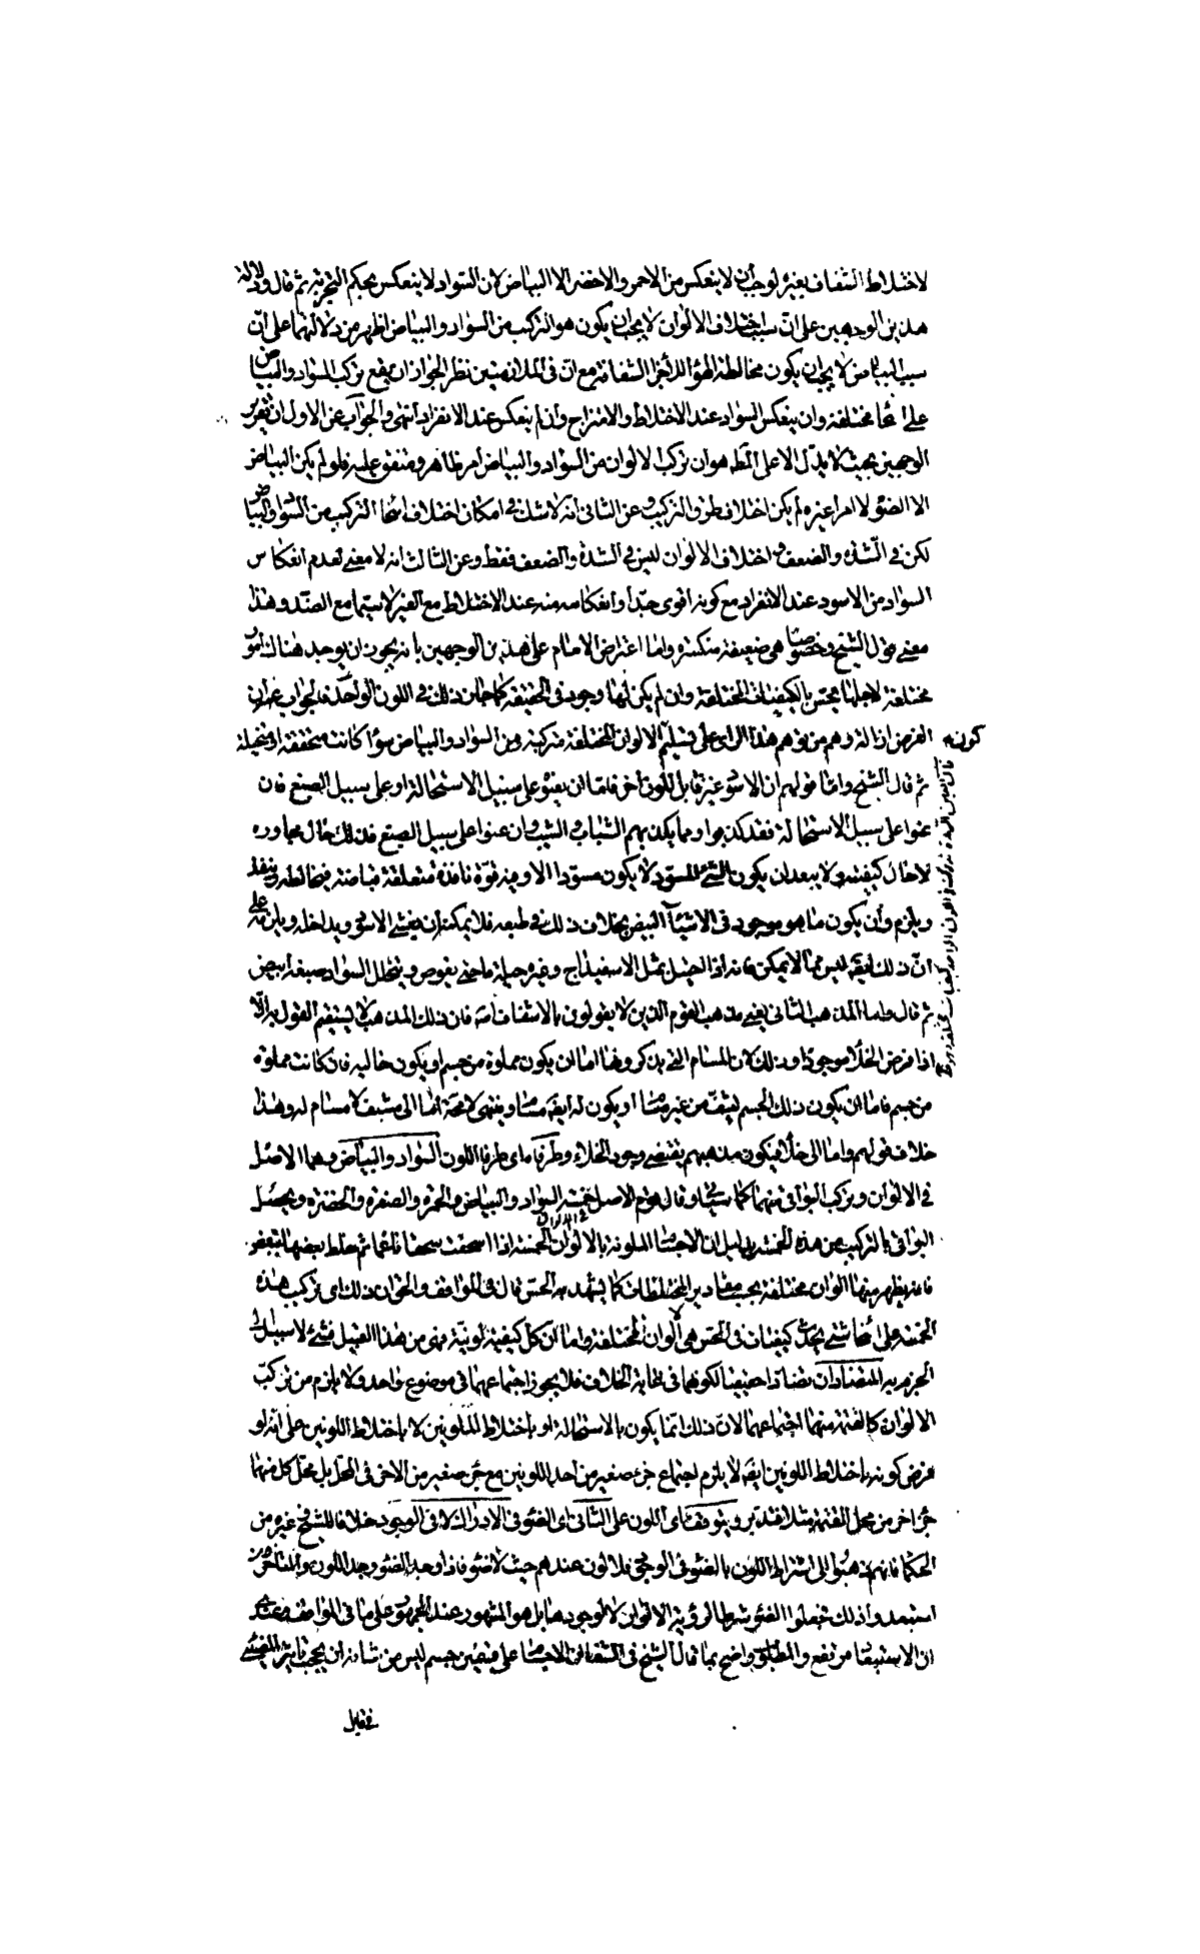 لاختلاط الشفاف بغيره لوجب أن لا ينعكس من الاحمر والاخضر الا البياض لان السواد لا ينعكس بحكم التجربة ثم قال ودلالة
هذين الوجهين على انّ سبب اختلاف الالوان لا يجب ان يكون هو التركيب من السواد والبياض اظهر من دلالتهما على انّ
سبب البياض لا يجب ان يكون مخالطة الهواء للاجزاء الشفافة مع انّ في الملازمتين نظر الجواز ان يقع تركب السواد والبياض
على انحاء مختلفة وان ينعكس السواد عند الاختلاط والامتزاج وان لم ينعكس عند الانفراد انتهى والجواب عن الاول ان تقرير
الوجهين بحيث لا يدل الا على المط هو ان تركب الالوان من السواد والبياض امر ظاهر ومتفق عليه فلو لم يكن البياض
الا الضوء لا امرا غيره لم يكن اختلاف طرق التركيب وعن الثاني انه لا شك في امكان اختلاف انحاء التركيب من السواد والبياض
لكن في الشدة والضعف و اختلاف الالوان ليس في الشدة والضعف فقط وعن الثالث انه لا معنى لعدم انعكاس
السواد من الاسود عند الانفراد مع كونه اقوى جدا وانعكاسه منه عند الاختلاط مع الغير لا سيما مع الضد وهذا
معنى قول الشيخ وخصوصا هي ضعيفة منكسرة واما اعتراض الامام على هذين الوجهين بانه يجوز ان يوجد هناك امور
مختلفة لاجلها يحس بالكيفيات المختلفة وان لم يكن لها وجود في الحقيقة كما جاز ذلك في اللون الواحد فالجواب عنه ان
الغرض ازالة وهم من توهم هذا الراى على تسليم الالوان المختلفة مركبة من السواد والبياض سواء كانت متحققة او متخيلة
كون
ثم قال الشيخ واما قولهم ان الاسود غير قابل للون اخر فاما ان يعنوه على سبيل الاستحالة او على سبيل الصبغ فان
عنوا على سبيل الاستحالة فقد كذبوا ومما يكذبهم الشباب والشيب وان عنوا على سبيل الصبغ فذلك حال مجاورة
لا حال كيفية ولا يبعد ان يكون الشئ المسود لا يكون مسودا الا وفيه قوة نافذة متعلقة قباضة فيخالط وينفذ
ويلزم وأن يكون ما هو موجود في الاشياء البيض بخلاف ذلك في طبعه فلا يمكنه ان يغشى الاسود ويداخله ويلزمه على
انّ ذلك ايضا ليس مما لا يمكن فانه اذا احتيل بمثل الاسفيداج وغيره حيلة ما حتى يغوص ويتخلل السواد صبغه ابيض
ثم قال واما المذهب الثاني يعني مذهب القوم الذين لا يقولون بالاشفاف انه فان ذلك المذهب لا يستقيم القول به الّا
اذا فرض الخلأ موجودا وذلك لان المسام التي يذكرونها اما ان يكون مملوة من جسم او يكون خالية فان كانت مملوة
من جسم فاما ان يكون ذلك الجسم يشف من غير مسام او يكون له ايضا مسام وينتهى لا محة اما الى مشف لا مسام له وهذا
خلاف قولهم واما الى خلأ فيكون مذهبهم يقتضي وجود الخلاء وطرفاه اى طرفا اللون السواد والبياض وهما الاصل
في الالوان وتركب البواقى منهما كما سبجئ وقال قوم الاصل خمسة السواد والبياض والحمرة والصفرة والخضرة ويحصل
في الالوان
البواقى بالتركيب من هذه الخمسة بدليل ان الاجسام الملونة بالالوان الخمسة اذا اسحقت سحقا ناعما ثم خلط بعضها ببعض
فانه يظهر منها الوان مختلفة بحسب مقادير المختلطات كما يشهد به الحس قال في المواقف والحق ان ذلك اى تركيب هذه
الخمسة على انحاء شتى يحدث كيفيات في الحس هى الوان المختلفة واما ان كل كيفية لونية فهى من هذا القبيل فشئ لا سبيل الى
الجزم به المتضادان تضادا حقيقيا لكونهما في غاية الخلاف فلا يجوز اجتماعهما في موضوع واحد ولا يلزم من تركب
الالوان كالقتمة منهما اجتماعهما لانّ ذلك انّما يكون بالاستحالة او باختلاط المتلونين لا باختلاط اللونين على انه لو
فرض كونه باختلاط اللونين ايضا لا يلزم اجتماع جزء صغير من احد اللونين مع جزء صغير من الاخر في المحل بل محل كل منهما
جزء اخر من محل القتمة مثلا فتدبر ويتوقف اى اللون على الثاني اى الضوء في الادراك لا في الوجود خلافا للشيخ وغيره من
الحكماء فانهم ذهبوا الى اشتراط اللون بالضوء في الوجود فلا لون عندهم حيث لا ضوء فاذا وجد الضوء وجد اللون والمتاخرون
استبعدوا ذلك فجعلوا الضوء شرطا لرؤية الالوان لا لوجودها بل هو المشهور عند الجمهور على ما في المواقف وعندى
ان الاستبعاد مرتفع والمط واضح بما قال الشيخ في الشفا ان الاجسام على قسمين جسم ليس من شانه ان يحجب تاثير المضئ
في قابل